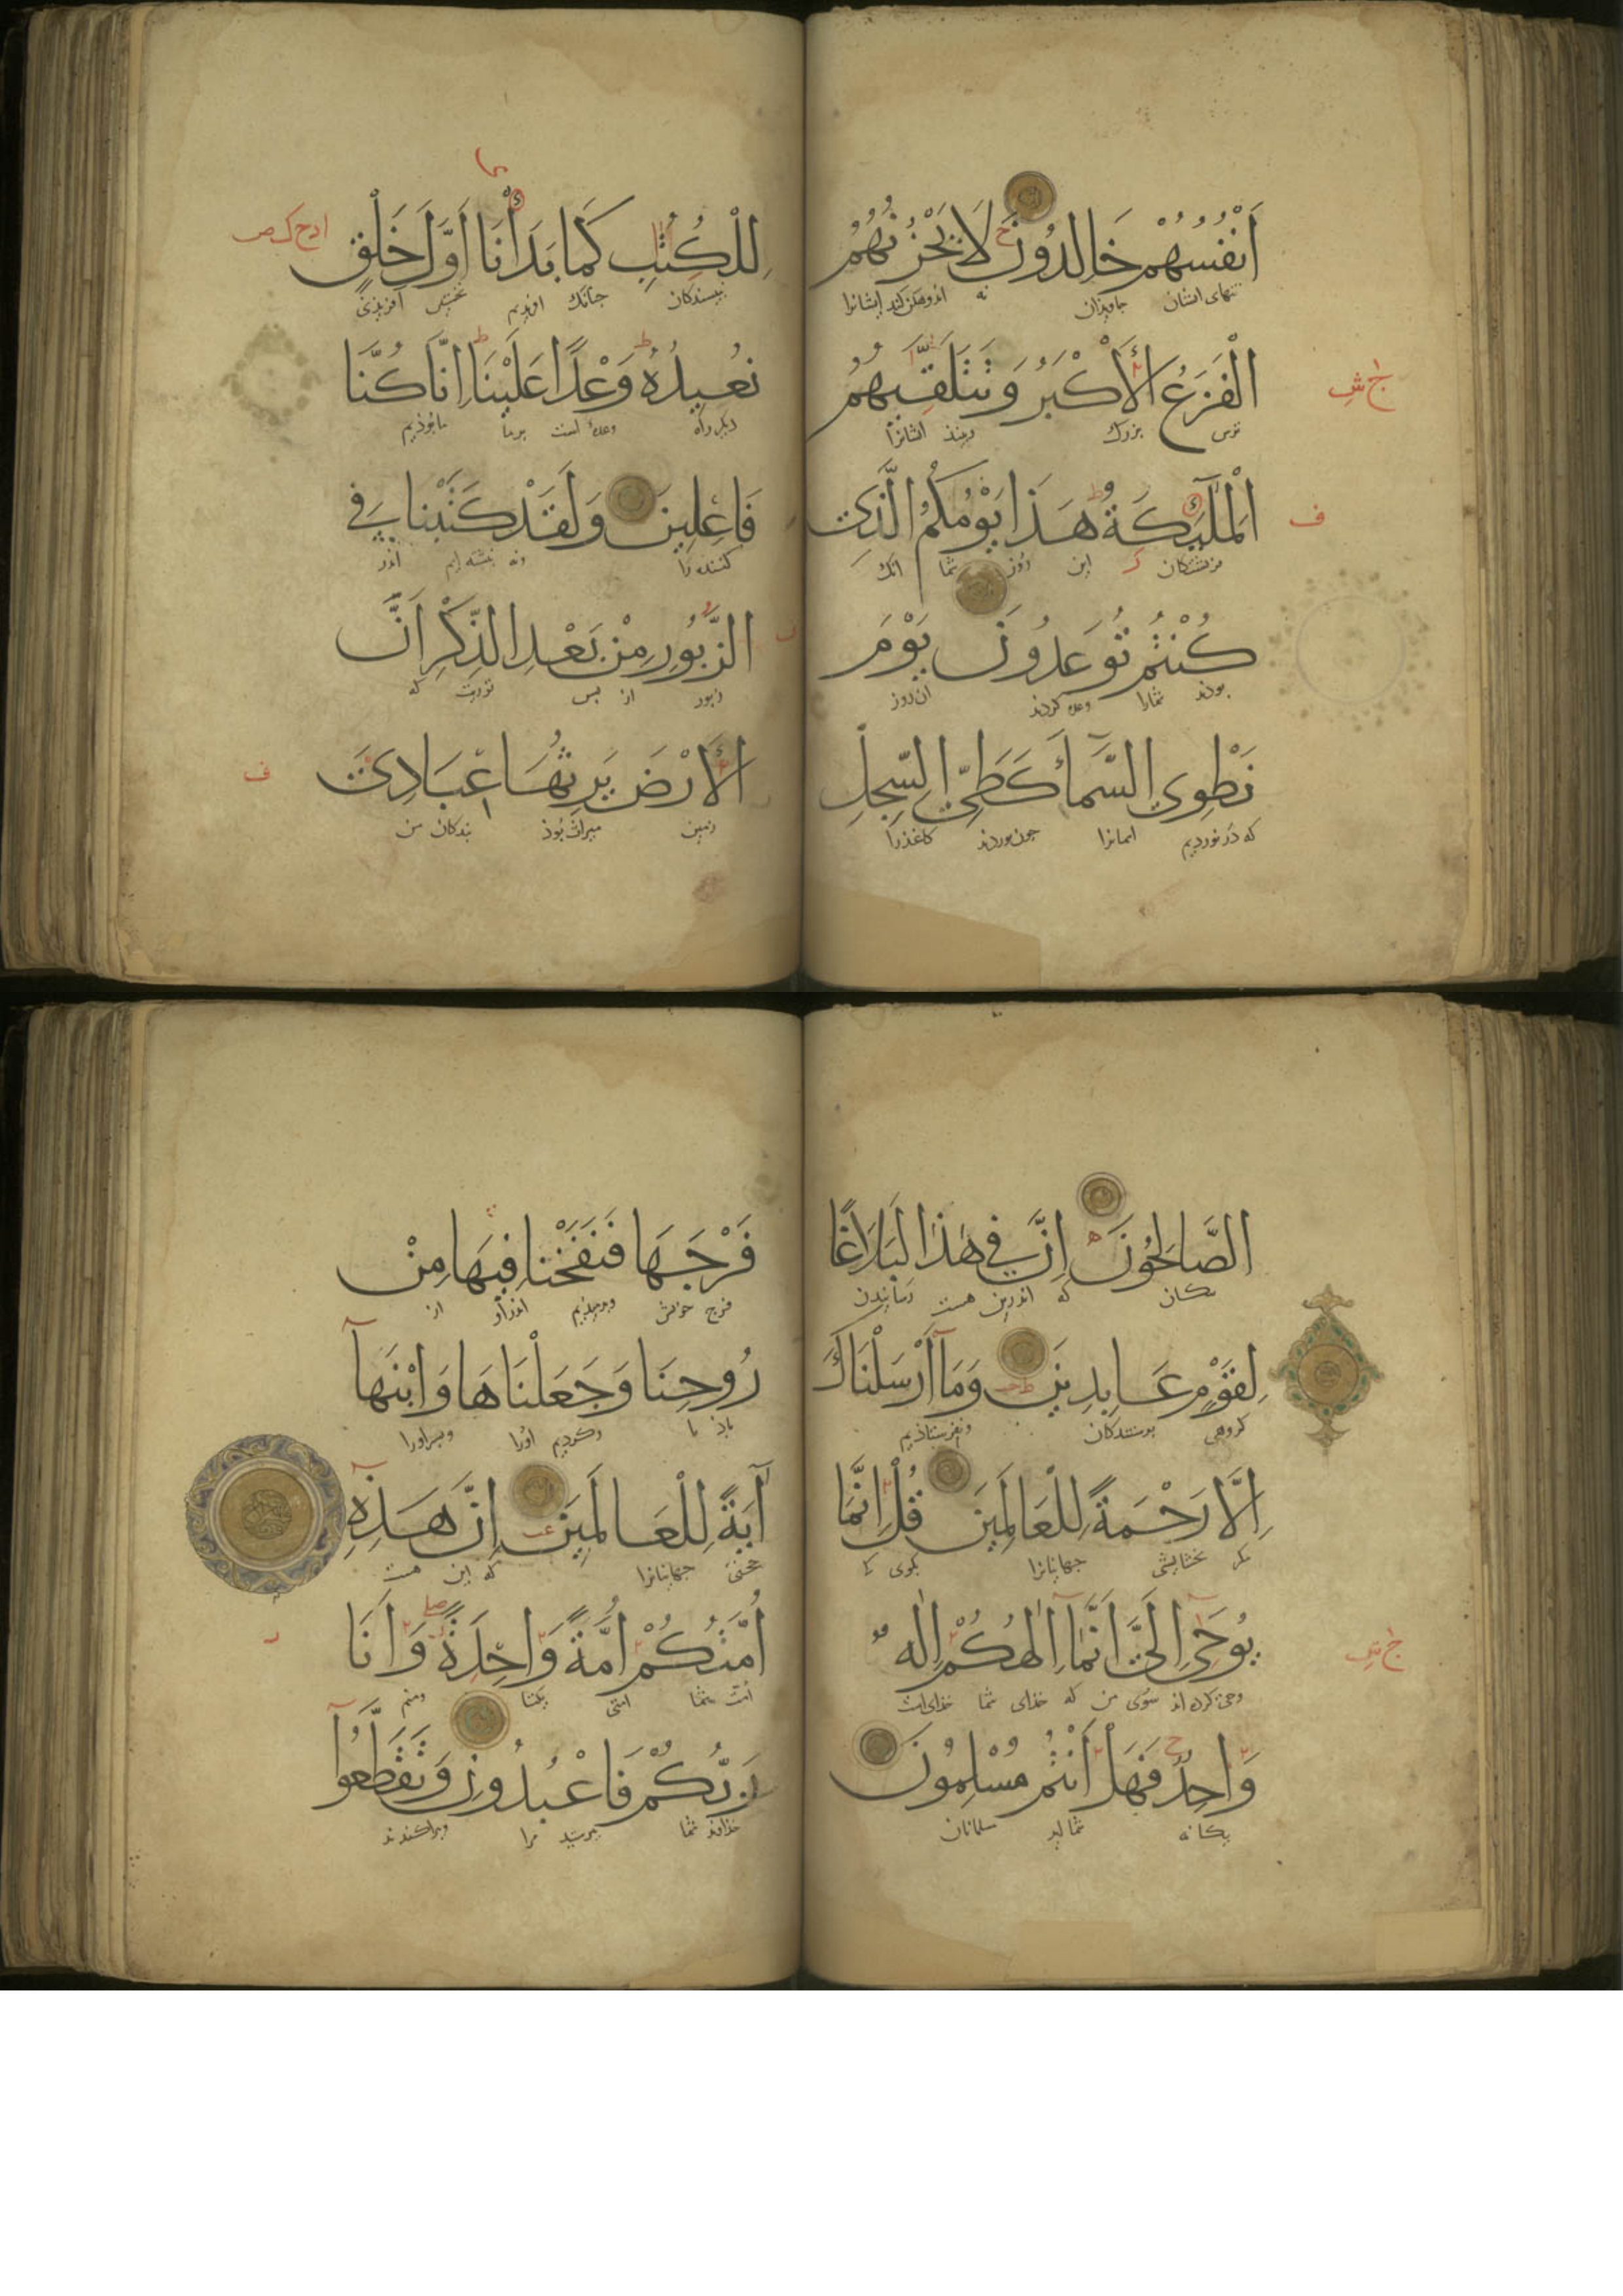 اَنْفُسُهُمْ خَالِدُونَ لَا يَحْزُنُهُمُ
تنهای ایشان جاویذان نه اندوهگن کند ایشانرا
الْفَزَعُ الْأَكْبَرُ وَتَتَلَقّٰيهُمُ
ترس بزرگ ایشانرا
ج ش
الْمَلٰٓئِكَةُ هَذَا يَوْمُكُمُ الَّذِي
فریشتگان این روز شما آنک
ف
كُنْتُمْ تُوعَدُونَ يَوْمَ
بودند شمارا وعده کردند آن روز
نَطْوِي السَّمَاءَ كَطَيِّ السِّجِلِّ
که در نوردیم آسمانرا چون نوردند کاغذرا
لِلْكُتُبِ كَمَا بَدَأْنَا اَوَّلَ خَلْقٍ
نبیسندگان چنانک آفریدیم نخستین آفریذن
نُعِيدُهُ وَعْدًا عَلَيْنَا اِنَّا كُنَّا
دیگر راه وعدهٔ است بر ما ما بوذیم
فَاعِلِينَ وَلَقَدْ كَتَبْنَا فِي
کننده را نبشته ایم اندر
الزَّبُورِ مِنْ بَعْدِ الذِّكْرِ اَنَّ
زبور از پس توریت که
الْأَرْضَ يَرِثُهَا عِبَادِيَ
زمین میراث بوذ بندگان من
ف
الصَّالِحُونَ اِنَّ فِي هٰذَا لَبَلَاغًا
نیکان که اندرین هست رسانیدن
لِقَوْمٍ عَابِدِينَ وَمَا أَرْسَلْنَاكَ
گروهی پرستندگان ونفرستاذیم
اِلَّا رَحْمَةً لِلْعَالَمِينَ قُلْ اِنَّمَا
مگر بخشایشی جهانیانرا بگوی
يُوحَى اِلَيَّ اَنَّمَا اِلٰهُكُمْ اِلٰهٌ
وحی کرده آذ سوی من که خذای شما خذای است
وَاحِدٌ فَهَلْ اَنْتُمْ مُسْلِمُونَ
یگانه شما اید مسلمانان
فَرْجَهَا فَنَفَخْنَا فِيهَا مِنْ
فرج خویش اندر او از
رُوحِنَا وَجَعَلْنَاهَا وَابْنَهَا
باذ ما وکردیم اورا وپسر اورا
آيَةً لِلْعَالَمِينَ اِنَّ هَذِهِ
حجتی جهانیانرا که این هست
اُمَّتُكُمْ اُمَّةً وَاحِدَةً وَاَنَا
امت شما امتی یکتا ومنم
رَبُّكُمْ فَاعْبُدُونِ وَتَقَطَّعُوا
خذاوند شما پرستید مرا وپراکندند